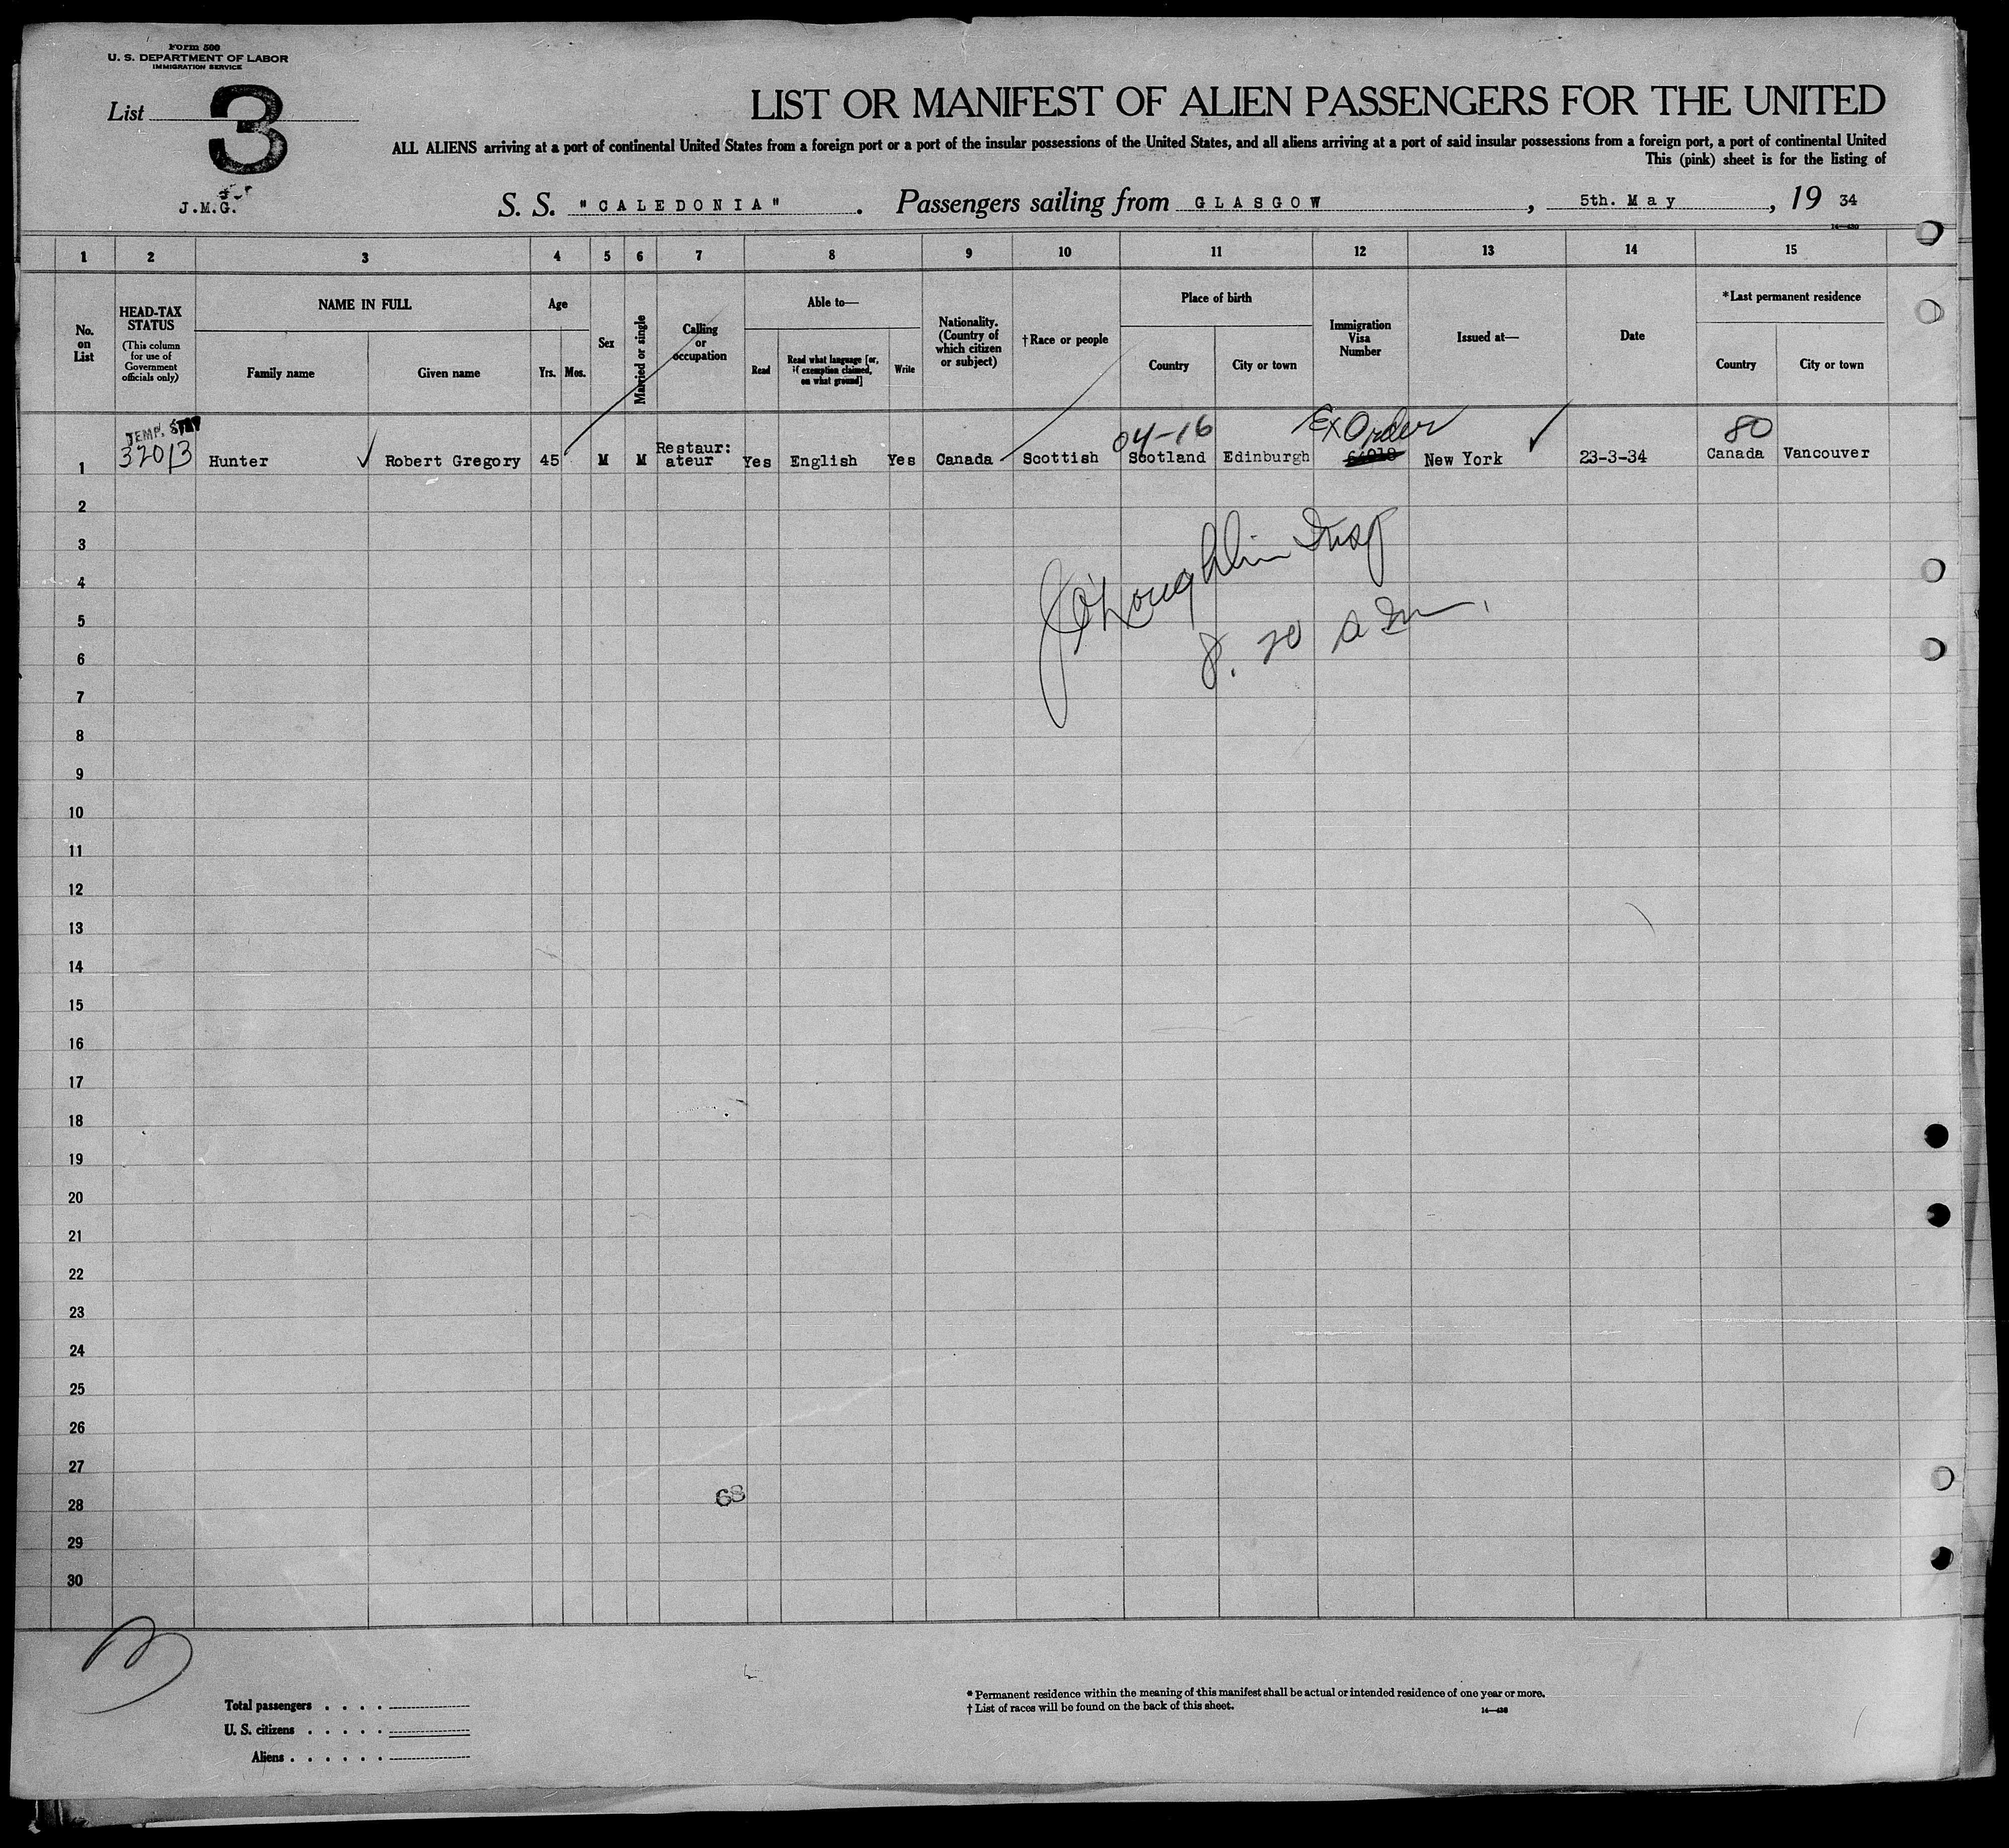 Form 500
U. S. DEPARTMENT OF LABOR
IMMIGRATION SERVICE
List 3
J.M.G.
LIST OR MANIFEST OF ALIEN PASSENGERS FOR THE UNITED
ALL ALIENS arriving at a port of continental United States from a foreign port or a port of the insular possessions of the United States, and all aliens arriving at a port of said insular possessions from a foreign port, a port of continental United
This (pink) sheet is for the listing of
S. S. "CALEDONIA". Passengers sailing from GLASGOW, 5th. May, 19 34
1 2 3 4 5 6 7 8 9 10 11 12 13 14 15
No. on List
HEAD-TAX STATUS
(This column for use of Government officials only)
NAME IN FULL
Family name
Given name
Age
Yrs. Mos.
Sex
Married or single
Calling or occupation
Able to—
Read
Read what language [or, if exemption claimed, on what ground]
Write
Nationality. (Country of which citizen or subject)
†Race or people
Place of birth
Country
City or town
Immigration Visa Number
Issued at—
Date
*Last permanent residence
Country
City or town
TEMP. STAY
04-16
Ex Order
80
1 32013 Hunter Robert Gregory 45 M M Restaur: ateur Yes English Yes Canada Scottish Scotland Edinburgh New York 23-3-34 Canada Vancouver
2
3
4
J O'Loughlin Insp
5
8.20 am.
6
7
8
9
10
11
12
13
14
15
16
17
18
19
20
21
22
23
24
25
26
27
28
68
29
30
Total passengers . . . .
U. S. citizens . . . . .
Aliens . . . . . .
* Permanent residence within the meaning of this manifest shall be actual or intended residence of one year or more.
† List of races will be found on the back of this sheet.